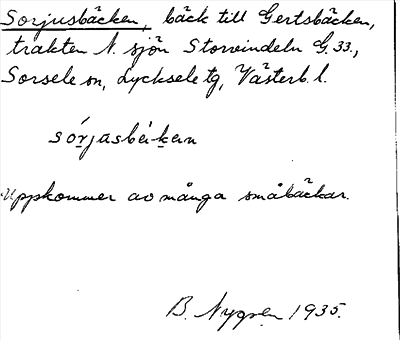 Sorjusbäcken, bäck till Gertsbäcken,
trakten N. sjön Storvindeln G. 33.,
Sorsele sn, Lycksele tg, Västerb. l.
sórjasbèkan
Uppkommer av många småbäckar.
B. Nygren 1935.